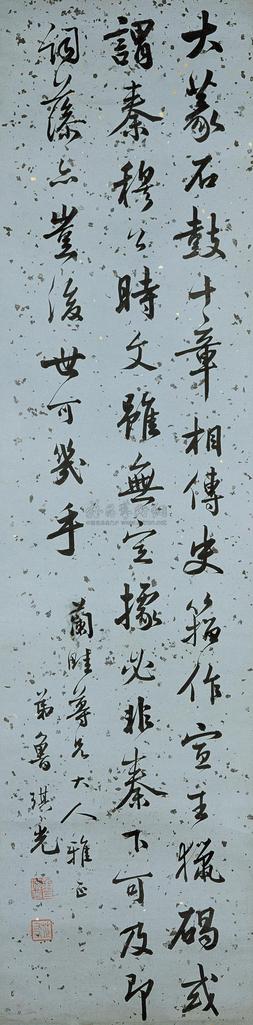 大篆石鼓十章相傳史籀作宣王獵碣或
謂秦穆公時文雖無定據必非秦下可及即
詞藻亦豈後世可幾手
蘭畦尊兄大人雅正
弟魯琪光